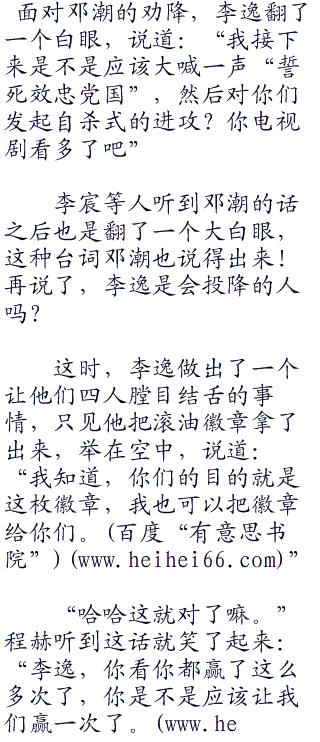 面对邓潮的劝降，李逸翻了
一个白眼，说道：“我接下
来是不是应该大喊一声“誓
死效忠党国”，然后对你们
发起自杀式的进攻？你电视
剧看多了吧”
李宸等人听到邓潮的话
之后也是翻了一个大白眼，
这种台词邓潮也说得出来！
再说了，李逸是会投降的人
吗？
这时，李逸做出了一个
让他们四人膛目结舌的事
情，只见他把滚油徽章拿了
出来，举在空中，说道：
“我知道，你们的目的就是
这枚徽章，我也可以把徽章
给你们。(百度“有意思书
院”)(www.heihei66.com)”
“哈哈这就对了嘛。”
程赫听到这话就笑了起来：
“李逸，你看你都赢了这么
多次了，你是不是应该让我
们赢一次了。(www.he